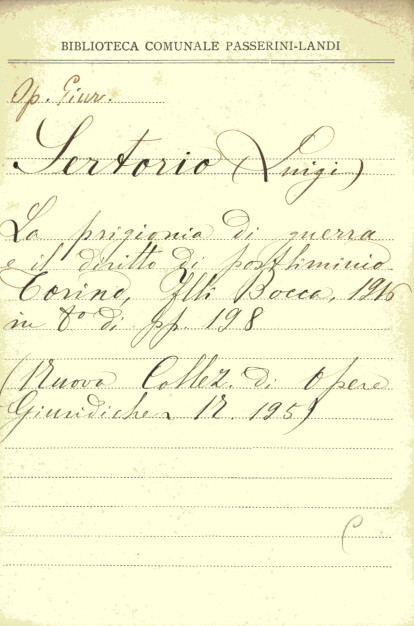 BIBLIOTECA COMUNALE PASSERINI-LANDI
Op. Giur.
Sertorio (Luigi)
La prigionia di guerra
e il diritto di postliminio
Torino, Flli Bocca, 1916
in 8° di pp. 198
(Nuova Collez. di Opere
Giuridiche N. 195)
C